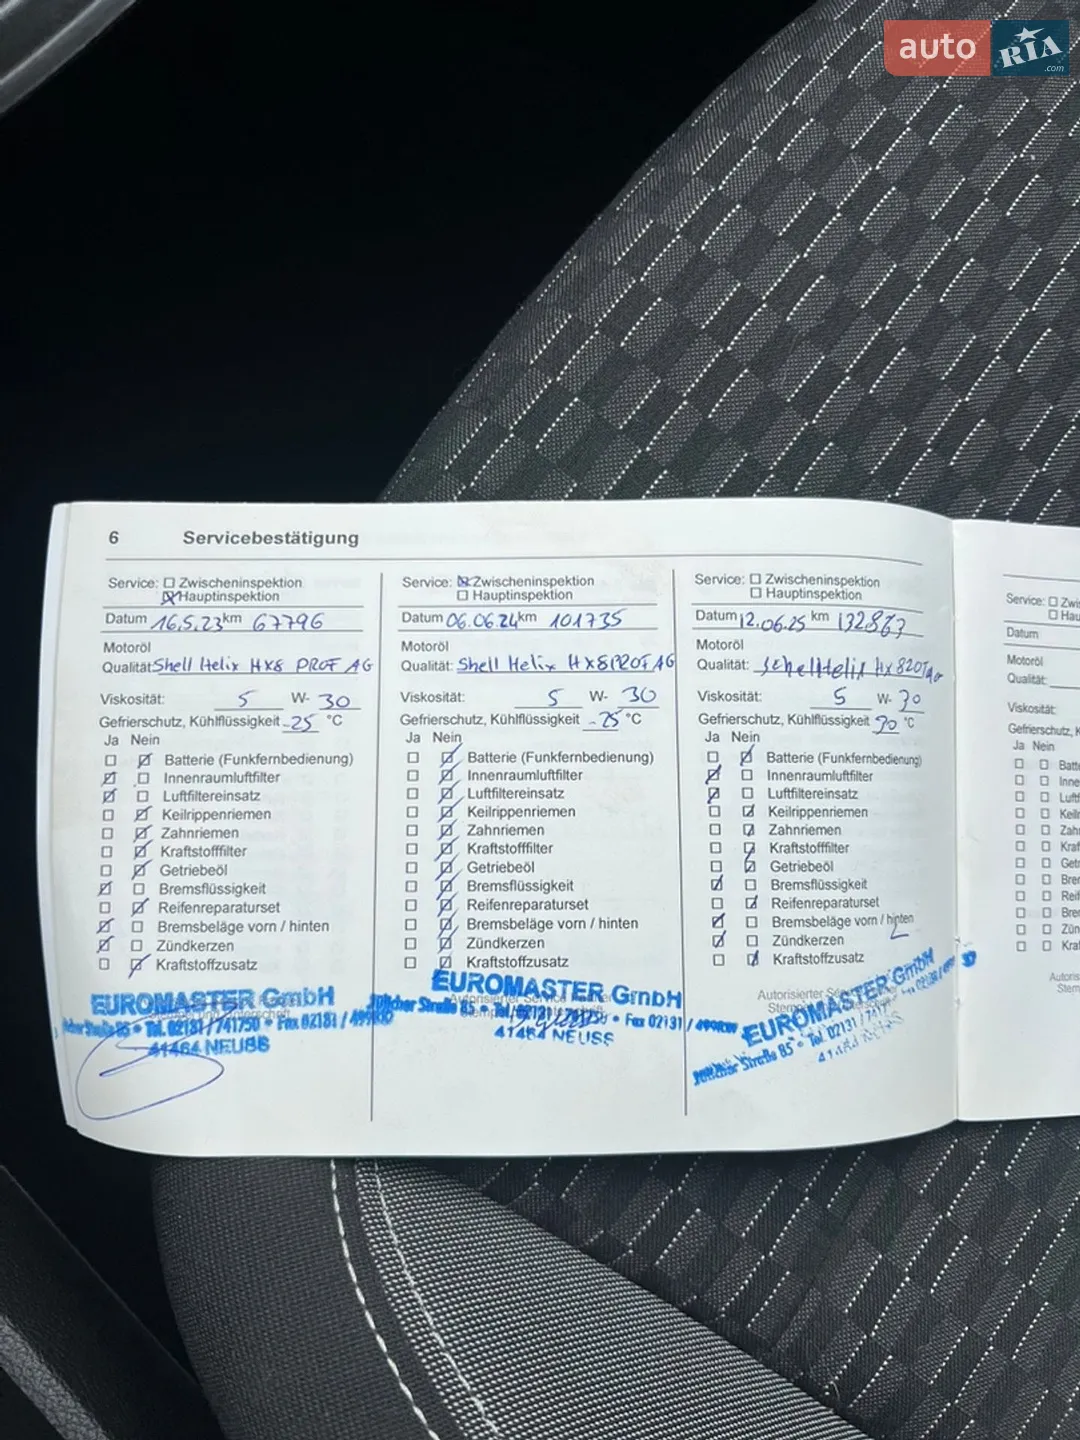 auto RIA.com
6 Servicebestätigung
Service: Zwischeninspektion
Hauptinspektion
Datum 16.5.23 km 67796
Motoröl
Qualität: Shell Helix HX8 PROF AG
Viskosität: 5 W- 30
Gefrierschutz, Kühlflüssigkeit -25 °C
Ja Nein
Batterie (Funkfernbedienung)
Innenraumluftfilter
Luftfiltereinsatz
Keilrippenriemen
Zahnriemen
Kraftstofffilter
Getriebeöl
Bremsflüssigkeit
Reifenreparaturset
Bremsbeläge vorn / hinten
Zündkerzen
Kraftstoffzusatz
EUROMASTER GmbH
Straße 85 • Tel. 02131/741750 • Fax 02131 /
41464 NEUSS
Service: Zwischeninspektion
Hauptinspektion
Datum 06.06.24 km 101735
Motoröl
Qualität: Shell Helix HX8 PROF AG
Viskosität: 5 W- 30
Gefrierschutz, Kühlflüssigkeit -25 °C
Ja Nein
Batterie (Funkfernbedienung)
Innenraumluftfilter
Luftfiltereinsatz
Keilrippenriemen
Zahnriemen
Kraftstofffilter
Getriebeöl
Bremsflüssigkeit
Reifenreparaturset
Bremsbeläge vorn / hinten
Zündkerzen
Kraftstoffzusatz
EUROMASTER GmbH
Autorisierter
Jülicher Straße 85 • Tel. 02131/741750 • Fax 02131 /
41464 NEUSS
Service: Zwischeninspektion
Hauptinspektion
Datum 12.06.25 km 132863
Motoröl
Qualität: Shell Helix HX8
Viskosität: 5 W- 30
Gefrierschutz, Kühlflüssigkeit °C
Ja Nein
Batterie (Funkfernbedienung)
Innenraumluftfilter
Luftfiltereinsatz
Keilrippenriemen
Zahnriemen
Kraftstofffilter
Getriebeöl
Bremsflüssigkeit
Reifenreparaturset
Bremsbeläge vorn / hinten
Zündkerzen
Kraftstoffzusatz
Autorisierter
EUROMASTER GmbH
Jülicher Straße 85 • Tel. 02131 /
Service: Zwi
Hau
Datum
Motoröl
Qualität:
Viskosität:
Gefrierschutz, K
Ja Nein
Batte
Inne
Luft
Keil
Zah
Kra
Get
Bre
Reif
Bre
Zün
Kra
Autoris
Stem